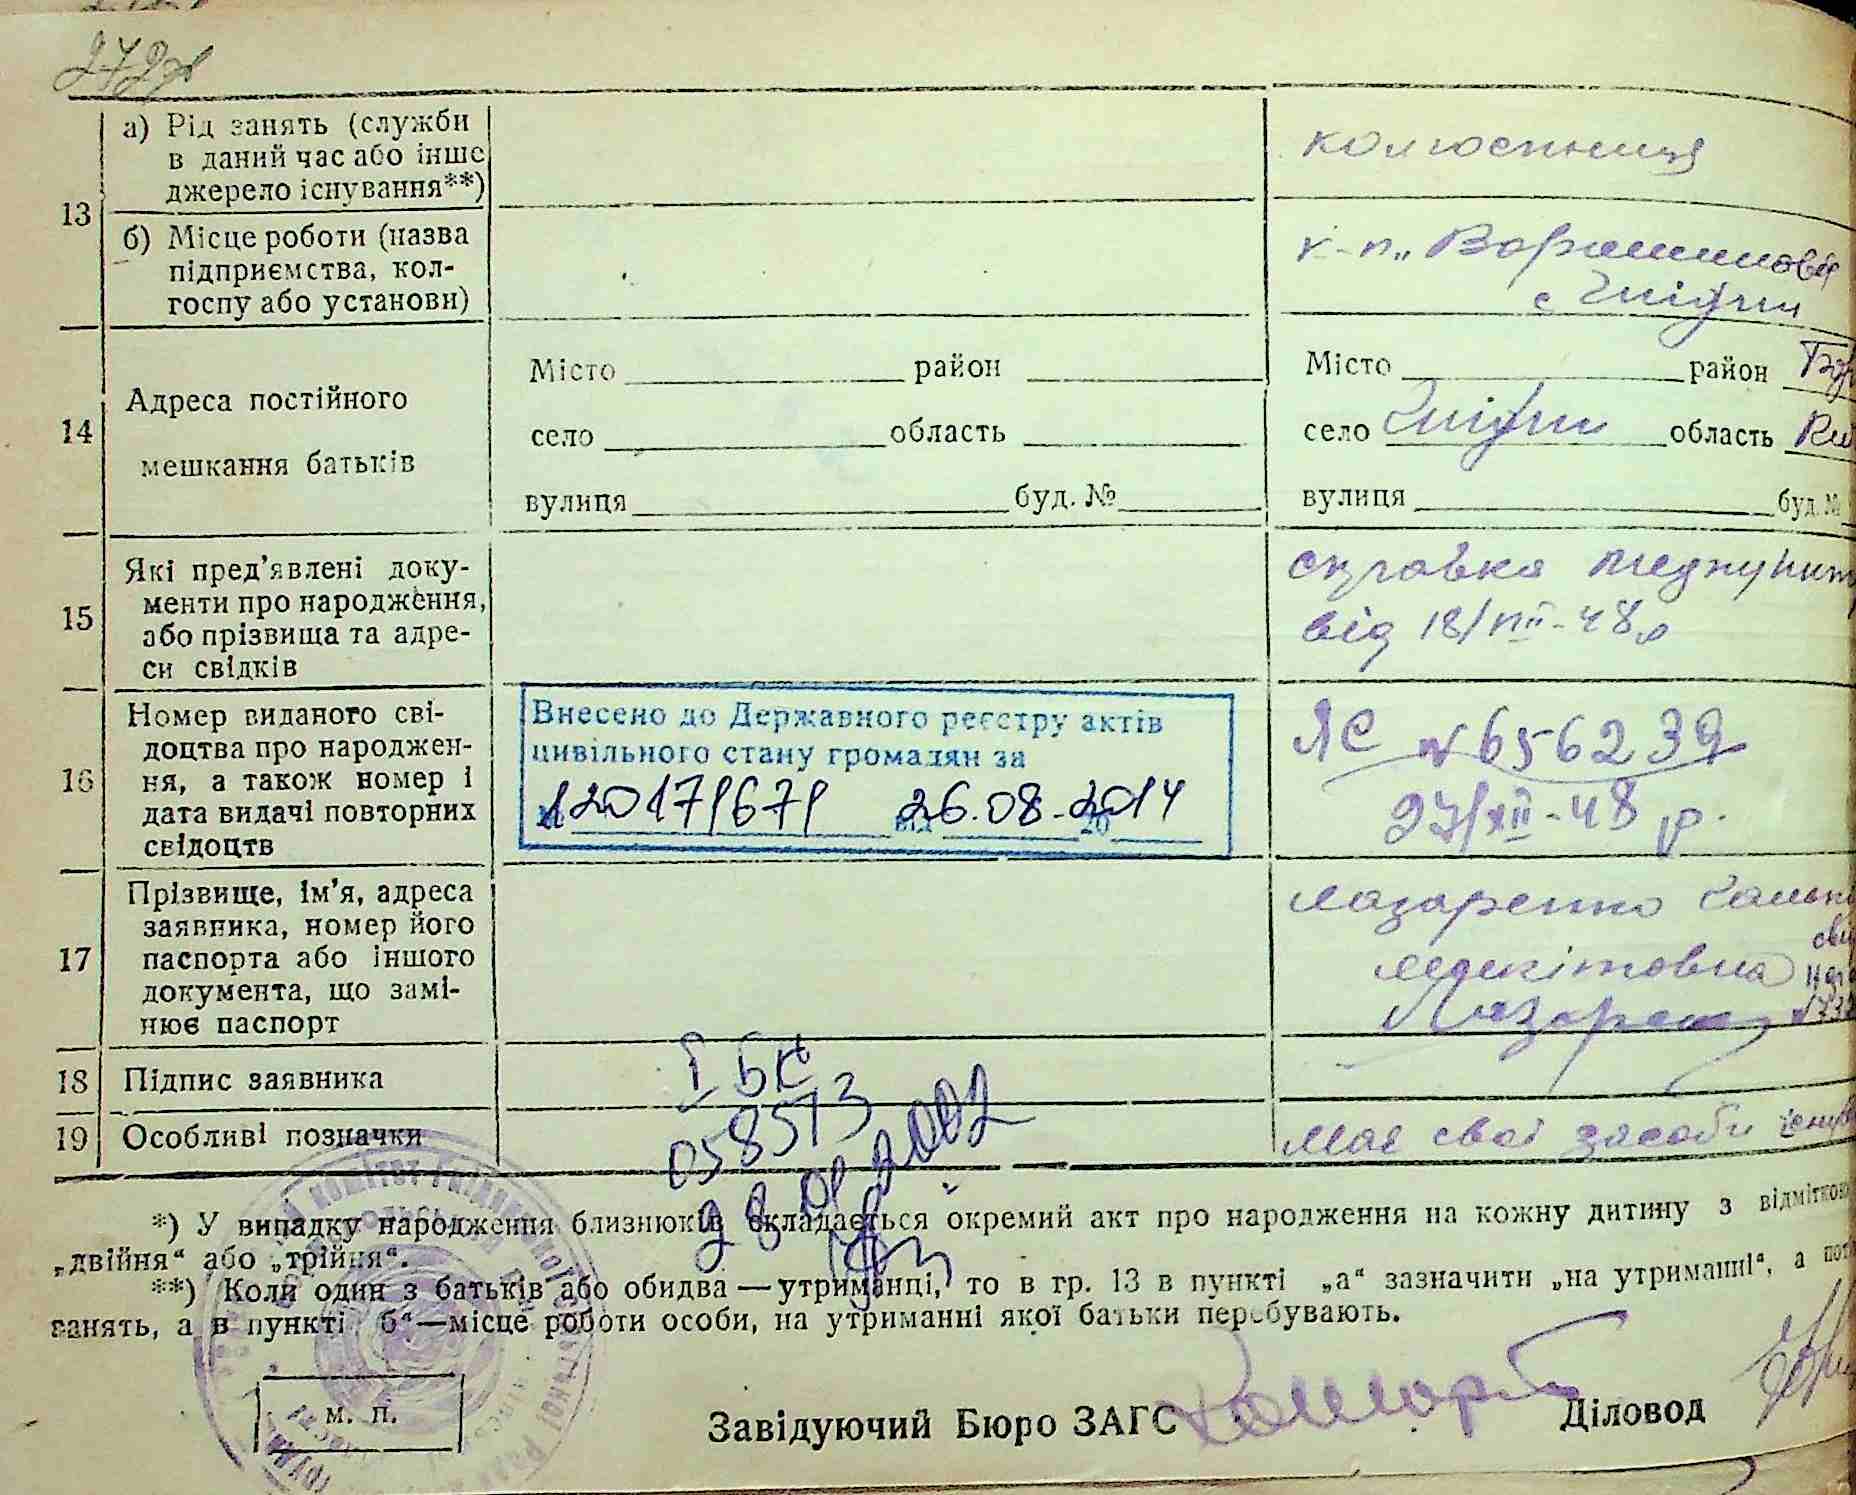 272
13
а) Рід занять (служби
в даний час або інше
джерело існування**)
колгоспниця
б) Місце роботи (назва
підприємства, кол-
госпу або установи)
к-п „Ворошилова
с Гнідин
14
Адреса постійного
мешкання батьків
Місто район
село область
вулиця буд. №
Місто район Бор
село Гнідин область Киї
вулиця буд. №
15
Які пред’явлені доку-
менти про народження,
або прізвища та адре-
си свідків
справка медпункт
від 18/ -48р
16
Номер виданого сві-
доцтва про народжен-
ня, а також номер і
дата видачі повторних
свідоцтв
Внесено до Державного реєстру актів
цивільного стану громадян за
№ 120171671 від 26.08.2014
ЯС №656239
27/XII-48 р.
17
Прізвище, ім’я, адреса
заявника, номер його
паспорта або іншого
документа, що замі-
нює паспорт
Лазаренко
Микитовна
Лазарен
18
Підпис заявника
19
Особливі позначки
І БК
058573
28 01 2002
Має свої засоби існув
*) У випадку народження близнюків складається окремий акт про народження на кожну дитину з відміткою
„двійня“ або „трійня“.
**) Коли один з батьків або обидва — утриманці, то в гр. 13 в пункті „а“ зазначити „на утриманні“, а
занять, а в пункті б“—місце роботи особи, на утриманні якої батьки перебувають.
м. п.
Завідуючий Бюро ЗАГС
Діловод